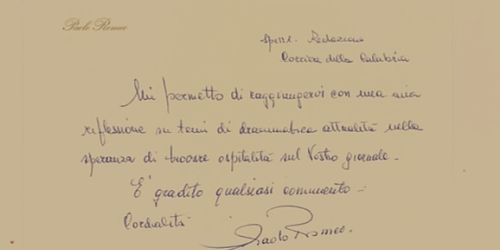 Paolo Romeo
Spett. Redazione
Corriere della Calabria
Mi permetto di raggiungervi con una mia
riflessione su temi di drammatica attualità nella
speranza di trovare ospitalità sul Vostro giornale -
E' gradito qualsiasi commento -
Cordialità
Paolo Romeo